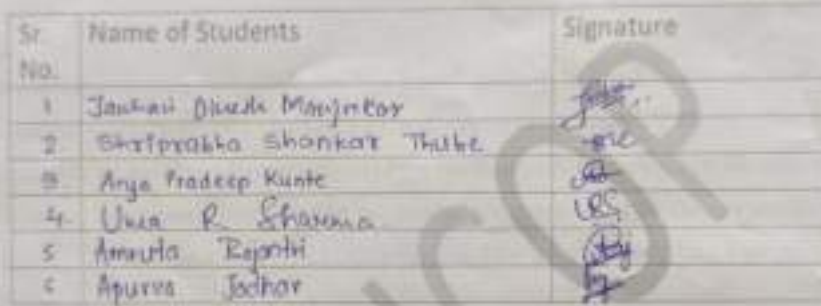 Sr. Name of Students Signature
No.
1 Janhavi Manjrekar
2 Shriprabha Shankar Thube
3 Arya Pradeep Kunte
4. Uma R. Sharma URS
5 Amruta
6 Apurva Jadhav
COP